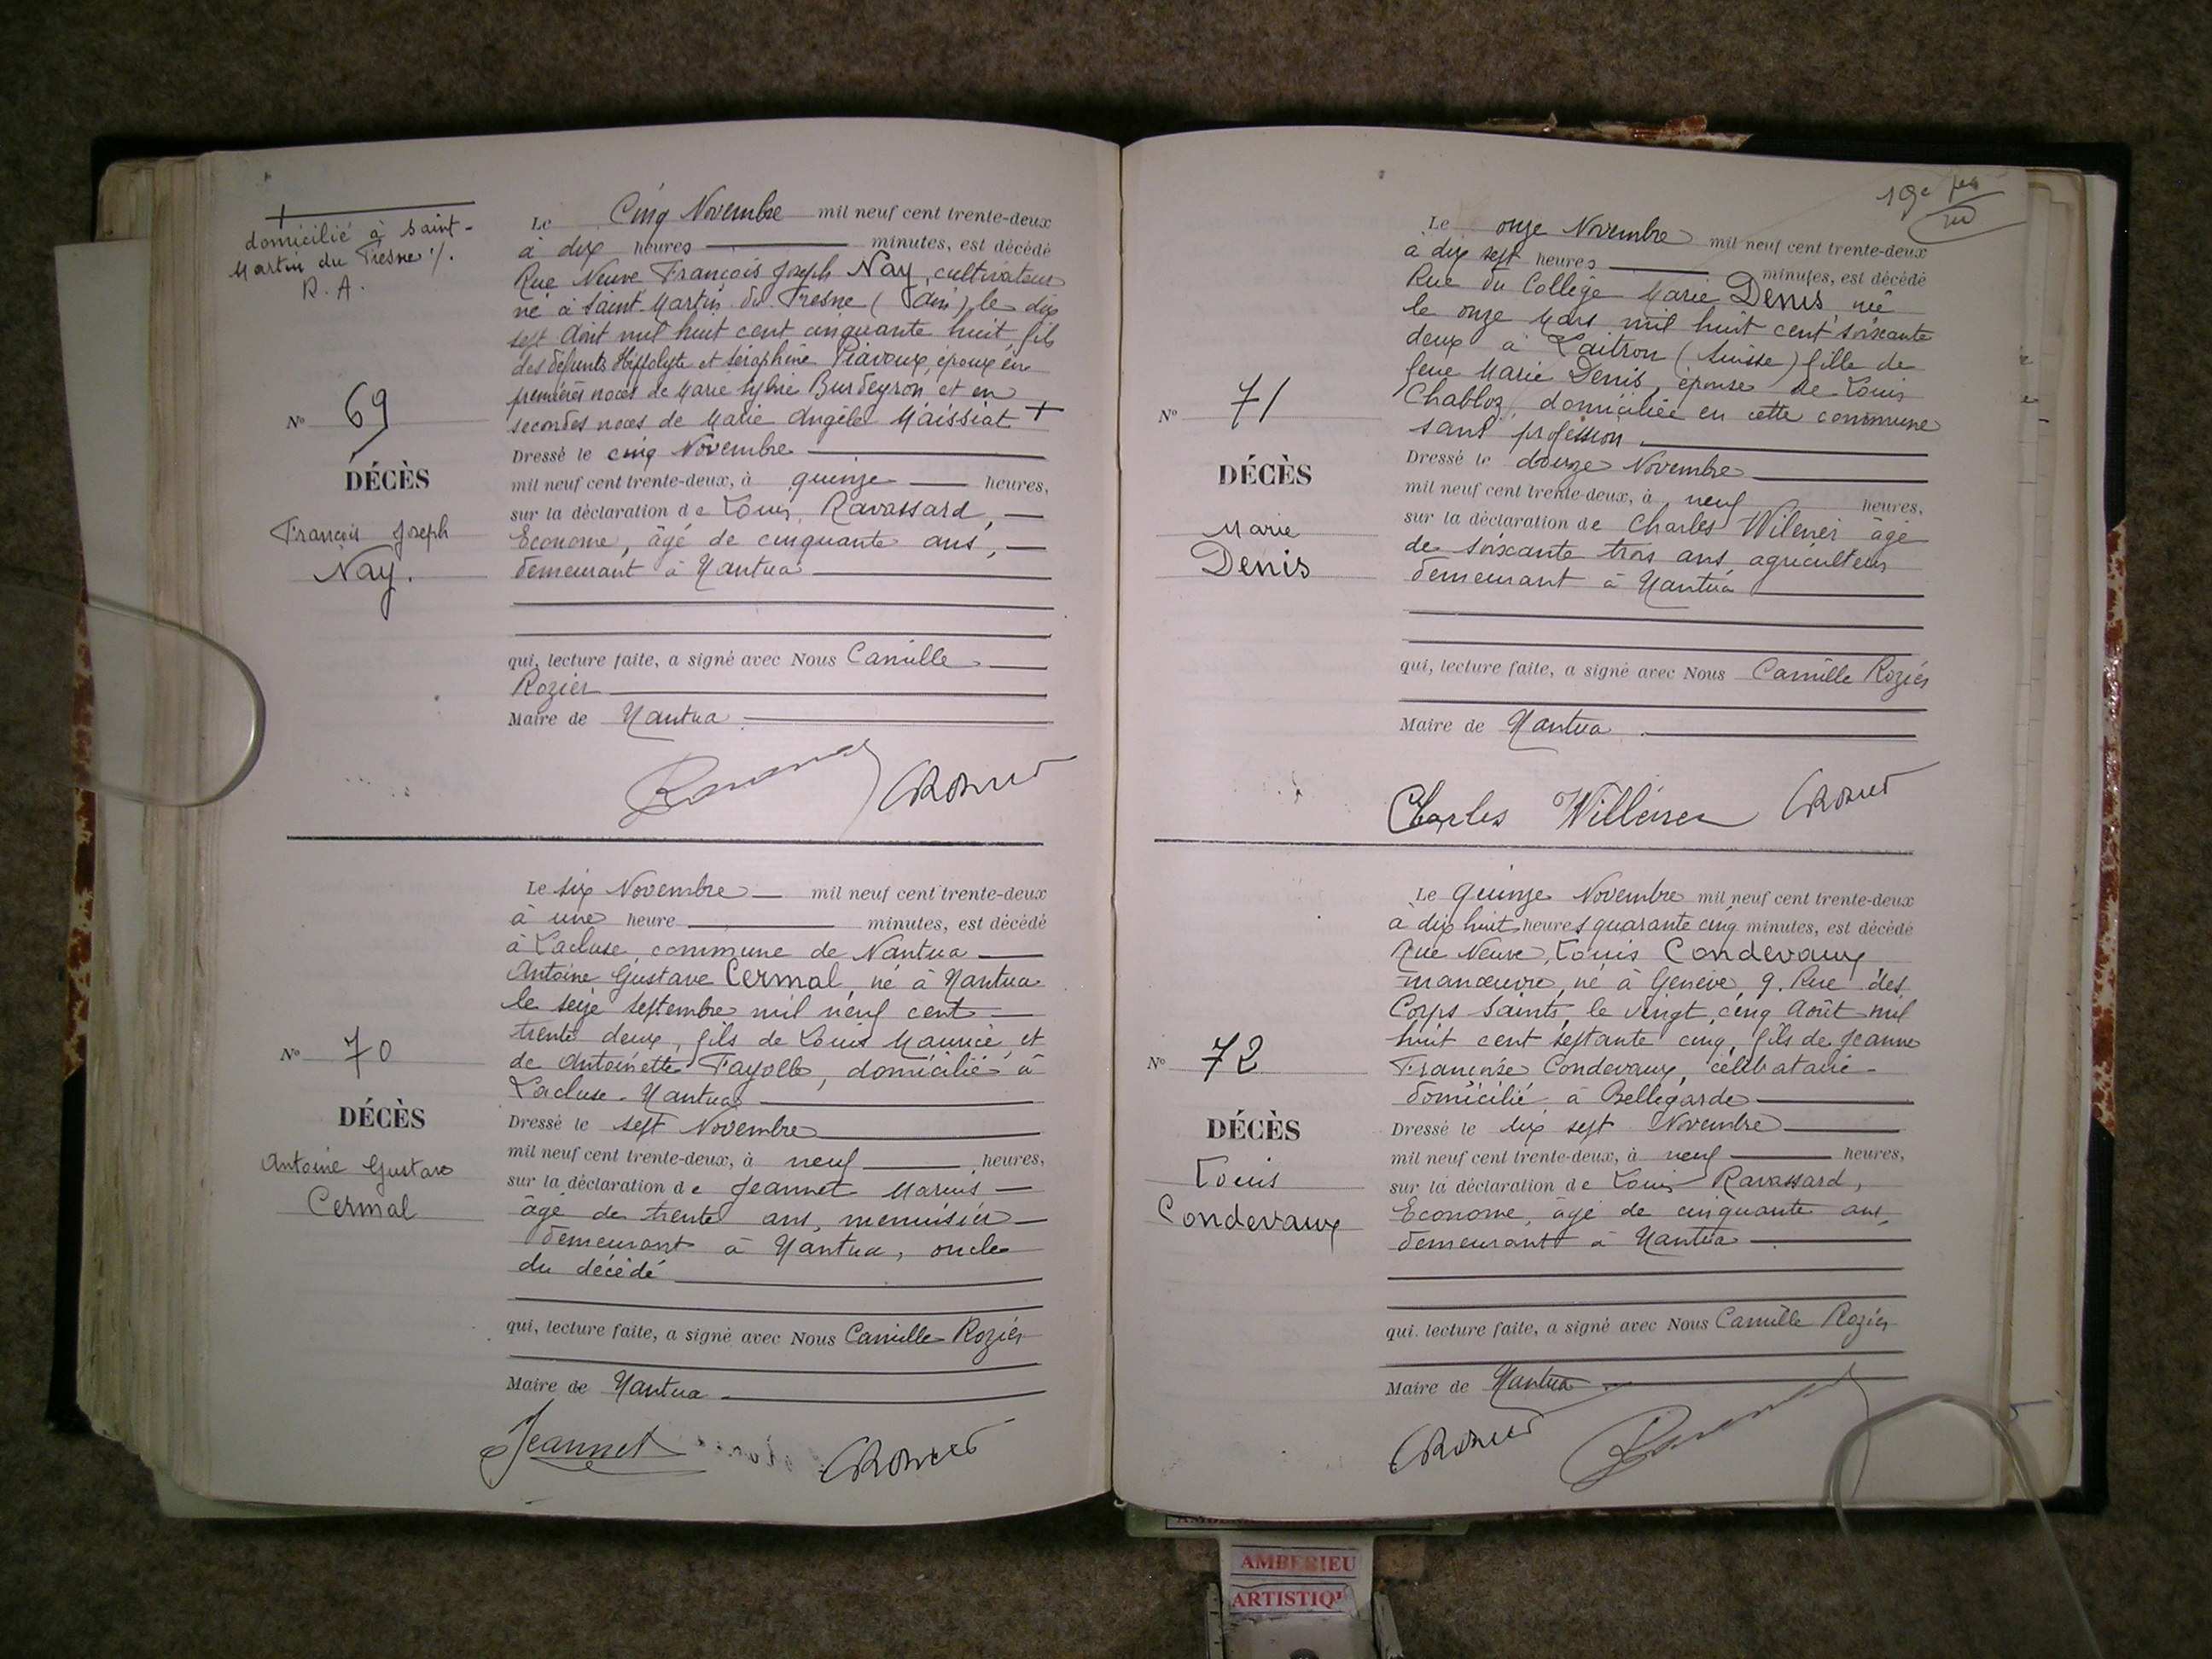 domicilié à Saint-
Martin du Fresne ./.
R. A.
Le Cinq Novembre mil neuf cent trente-deux
à dix heures minutes, est décédé
Rue Neuve François Joseph Nay, cultivateur
né à Saint-Martin du Fresne (Ain) le dix
sept Août mil huit cent cinquante huit, fils
des défunts Hippolyte et Séraphine Piavoux, époux en
premières noces de Marie Sylvie Burdeyron et en
secondes noces de Marie Angèle Maissiat +
Dressé le cinq Novembre
mil neuf cent trente-deux, à quinze heures,
sur la déclaration de Louis Ravassard,
Econome, âgé de cinquante ans,
demeurant à Nantua
qui, lecture faite, a signé avec Nous Camille
Rozier
Maire de Nantua
No 69
DÉCÈS
François Joseph
Nay.
Le six Novembre mil neuf cent trente-deux
à une heure minutes, est décédé
à Lacluse, commune de Nantua
Antoine Gustave Cermal, né à Nantua
le seize septembre mil neuf cent
trente deux, fils de Louis Maurice et
de Antoinette Fayolle, domicilié à
Lacluse-Nantua
Dressé le sept Novembre
mil neuf cent trente-deux, à neuf heures,
sur la déclaration de Jeannet Marius
âgé de trente ans, menuisier
demeurant à Nantua, oncle
du décédé
qui, lecture faite, a signé avec Nous Camille Rozier
Maire de Nantua
Jeannet
No 70
DÉCÈS
Antoine Gustave
Cermal
19e
Le onze Novembre mil neuf cent trente-deux
à dix sept heures minutes, est décédé
Rue du Collège Marie Denis, née
le onze Mars mil huit cent soixante
deux à Laitron (Suisse) fille de
feue Marie Denis, épouse de Louis
Chabloz, domiciliée en cette commune
sans profession
Dressé le douze Novembre
mil neuf cent trente-deux, à neuf heures,
sur la déclaration de Charles Wilener âgé
de soixante trois ans, agriculteur
demeurant à Nantua
qui, lecture faite, a signé avec Nous Camille Rozier
Maire de Nantua
Charles Willener
No 71
DÉCÈS
Marie
Denis
Le quinze Novembre mil neuf cent trente-deux
à dix huit heures quarante cinq minutes, est décédé
Rue Neuve, Louis Condevaux
manœuvre, né à Genève, 9. Rue des
Corps Saints, le vingt cinq Août mil
huit cent septante cinq, fils de Jeanne
Françoise Condevaux, célibataire
domicilié à Bellegarde
Dressé le dix sept Novembre
mil neuf cent trente-deux, à neuf heures,
sur la déclaration de Louis Ravassard,
Econome, âgé de cinquante ans,
demeurant à Nantua
qui, lecture faite, a signé avec Nous Camille Rozier
Maire de Nantua
No 72
DÉCÈS
Louis
Condevaux
AMBERIEU
ARTISTIQ